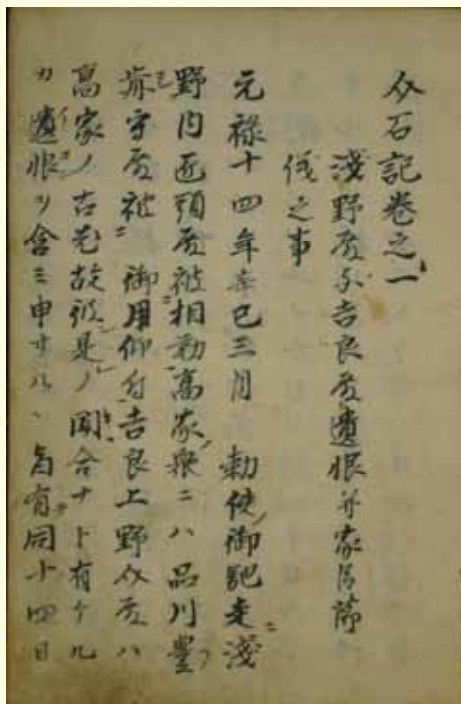 介石記巻之一
淺野殿与吉良殿遺恨并家臣節
儀之事
元禄十四年辛巳三月 勅使御馳走淺
野内匠頭殿被相勤高家衆ニハ品川豊
前守殿被 御用仰付吉良上野介殿ハ
高家ノ古老故彼是ノ聞合ナト有ケル
カ遺恨ヲ含ミ申サルヽ旨有同十四日